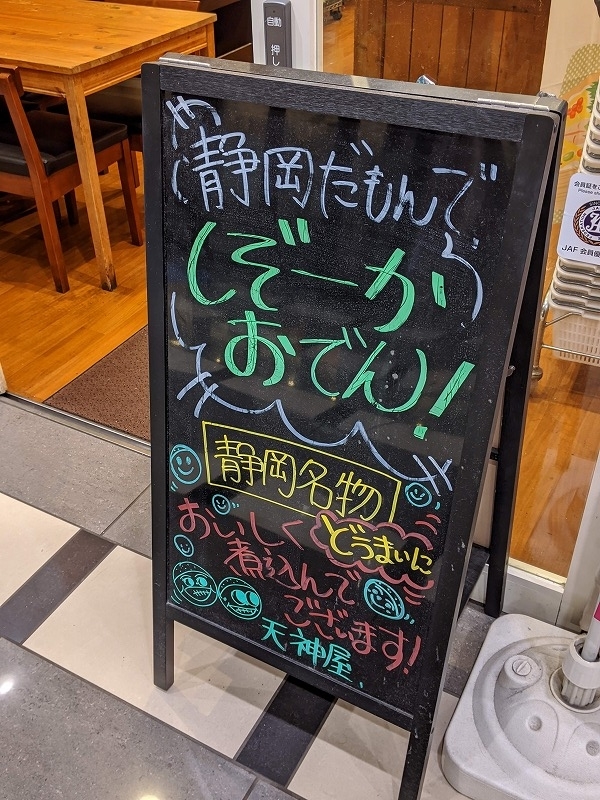 自動
押し
静岡だもんで
しぞーか
おでん!
静岡名物
おいしく
どうまいに
煮込んで
ございます!
天神屋
会員証をご
Please sh
JAF 会員優